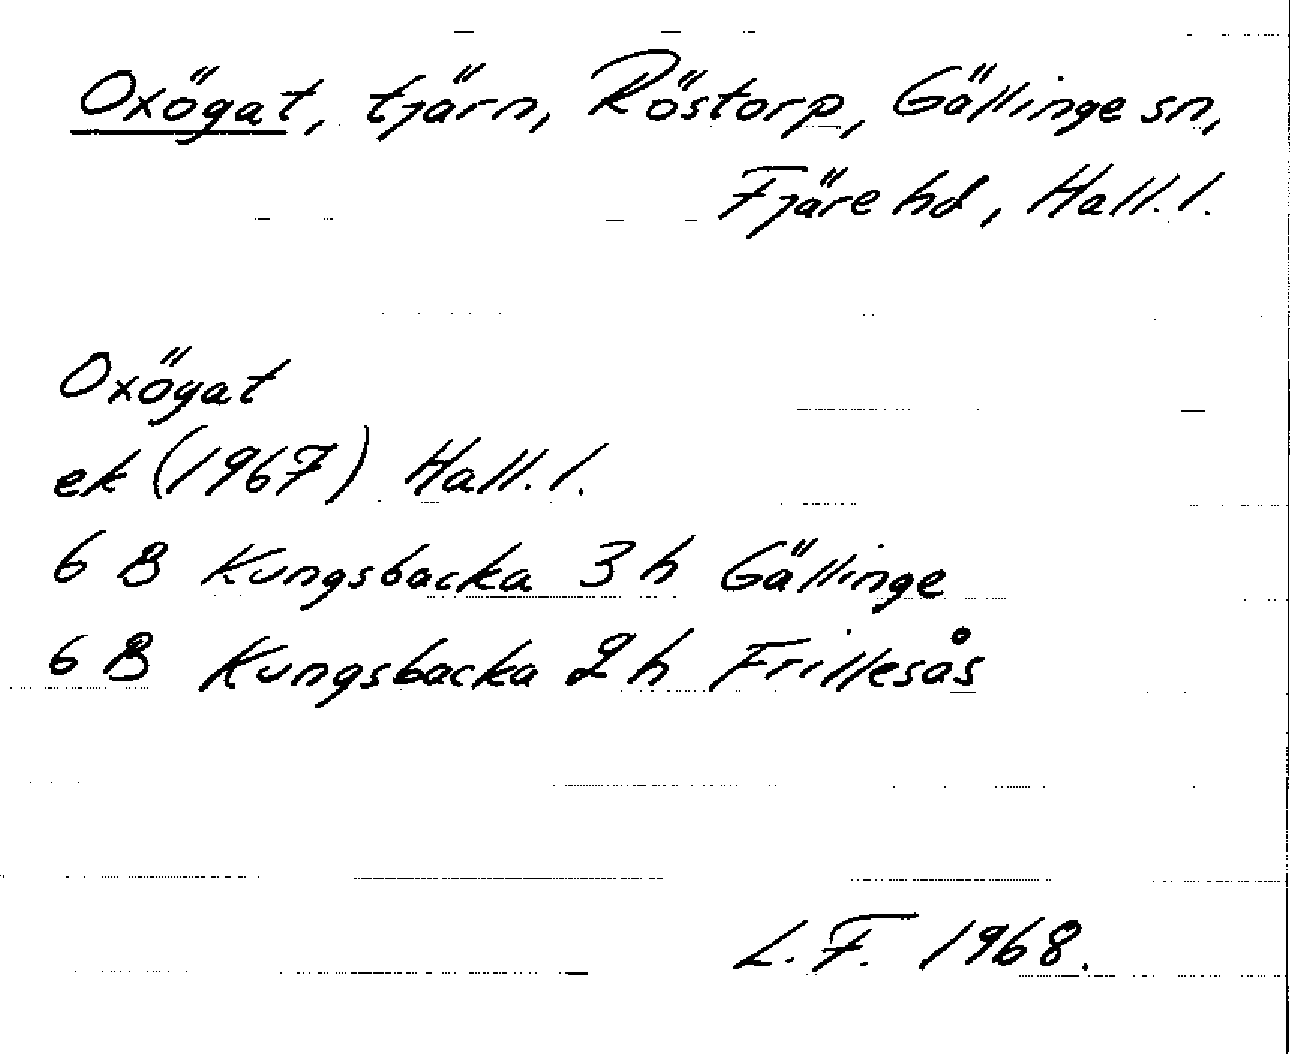 Oxögat, tjärn, Röstorp, Gällinge sn,
Fjäre hd, Hall. l.
Oxögat
ek (1967) Hall. l.
6 B Kungsbacka 3 h Gällinge
6 B Kungsbacka 2 h Frillesås
L. F. 1968.